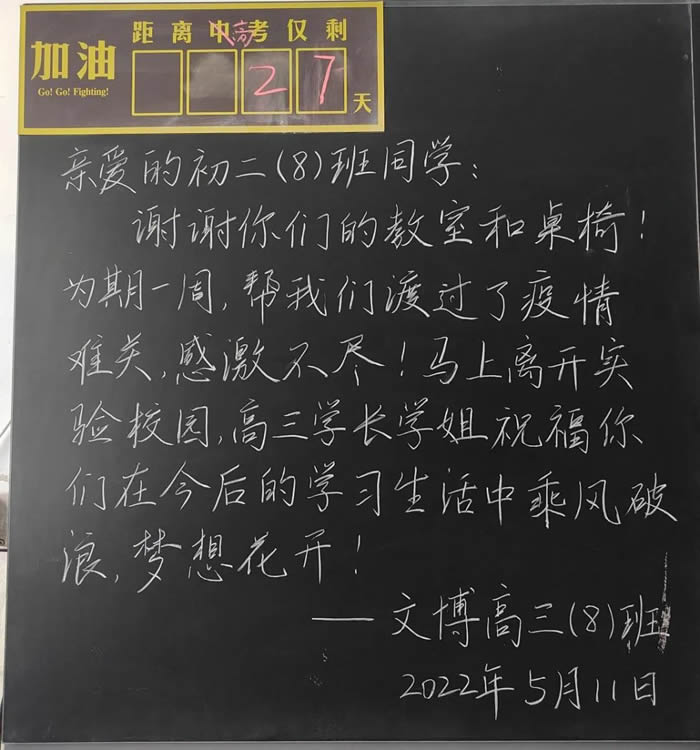 距离中高考仅剩
加油
Go! Go! Fighting!
27天
亲爱的初二(8)班同学:
谢谢你们的教室和桌椅!
为期一周,帮我们渡过了疫情
难关,感激不尽!马上离开实
验校园,高三学长学姐祝福你
们在今后的学习生活中乘风破
浪,梦想花开!
——文博高三(8)班
2022年5月11日